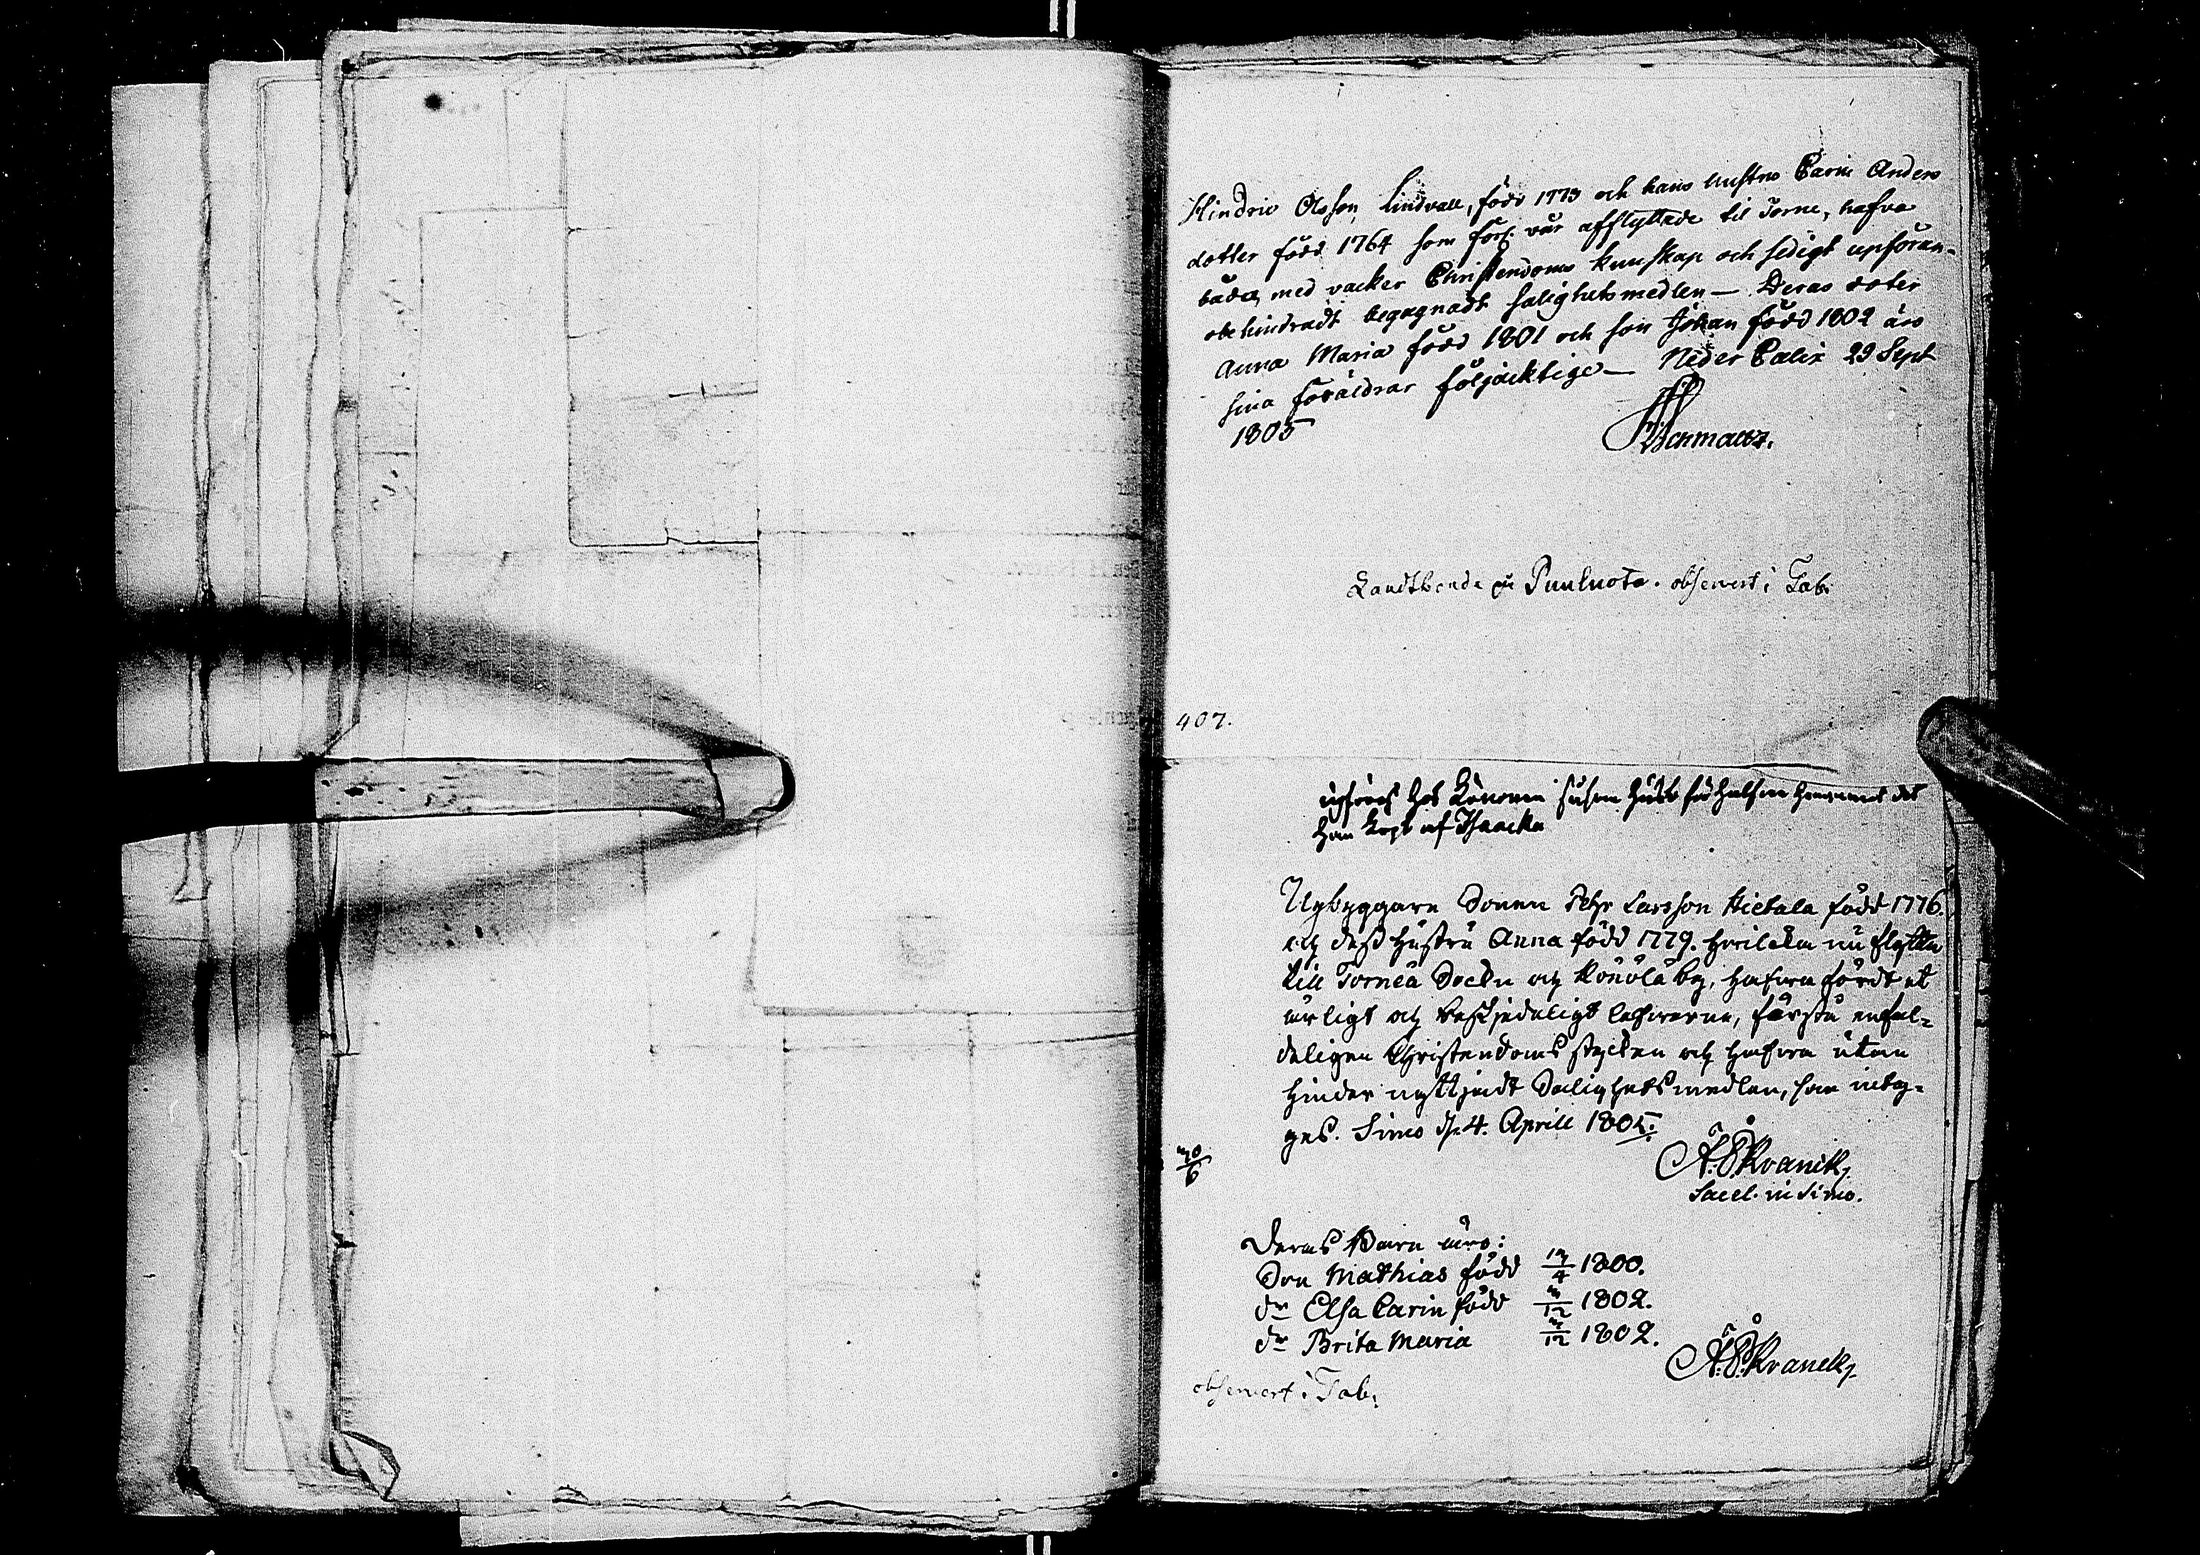 Hindric Olsson Lindvall, född 1773 och hans hustro Carin Anders
dotter född 1764 som förl. vår afflyttade til Torne, hafva
båda, med vacker Christendoms kunskap och sedigt upföran-
obehindradt begagnadt salighetsmedlen — Deras doter
Anna Maria född 1801 och son Johan född 1802 äro
sina föräldrar följacktige — Neder Calix 29 Sept
1805
Landtbonde på observert i Tab.
407.
upföres hos Könönen
han köpt af Isaacka
Nybyggare Sonen Petr Larsson Hietala född 1776.
och dess hustru Anna född 1779. hvilcka nu flytta
till Torneå Sockn och Könölä by, hafva fördt et
ärligt och beskjedeligt lefverne, förstå enfal-
deligen Christendoms stycken och hafva utan
hinder nyttjadt Salighetsmedlen, som inty-
ges. Simo d. 4. Aprill 1805.
30/6
A. Kranck,
Sacel. in Simo.
Deras Barn äro:
Son Mathias född 17/4 1800.
dr Elsa Carin född 3/12 1802.
dr Brita Maria 3/12 1802.
A. Kranck,
observert i Tab.